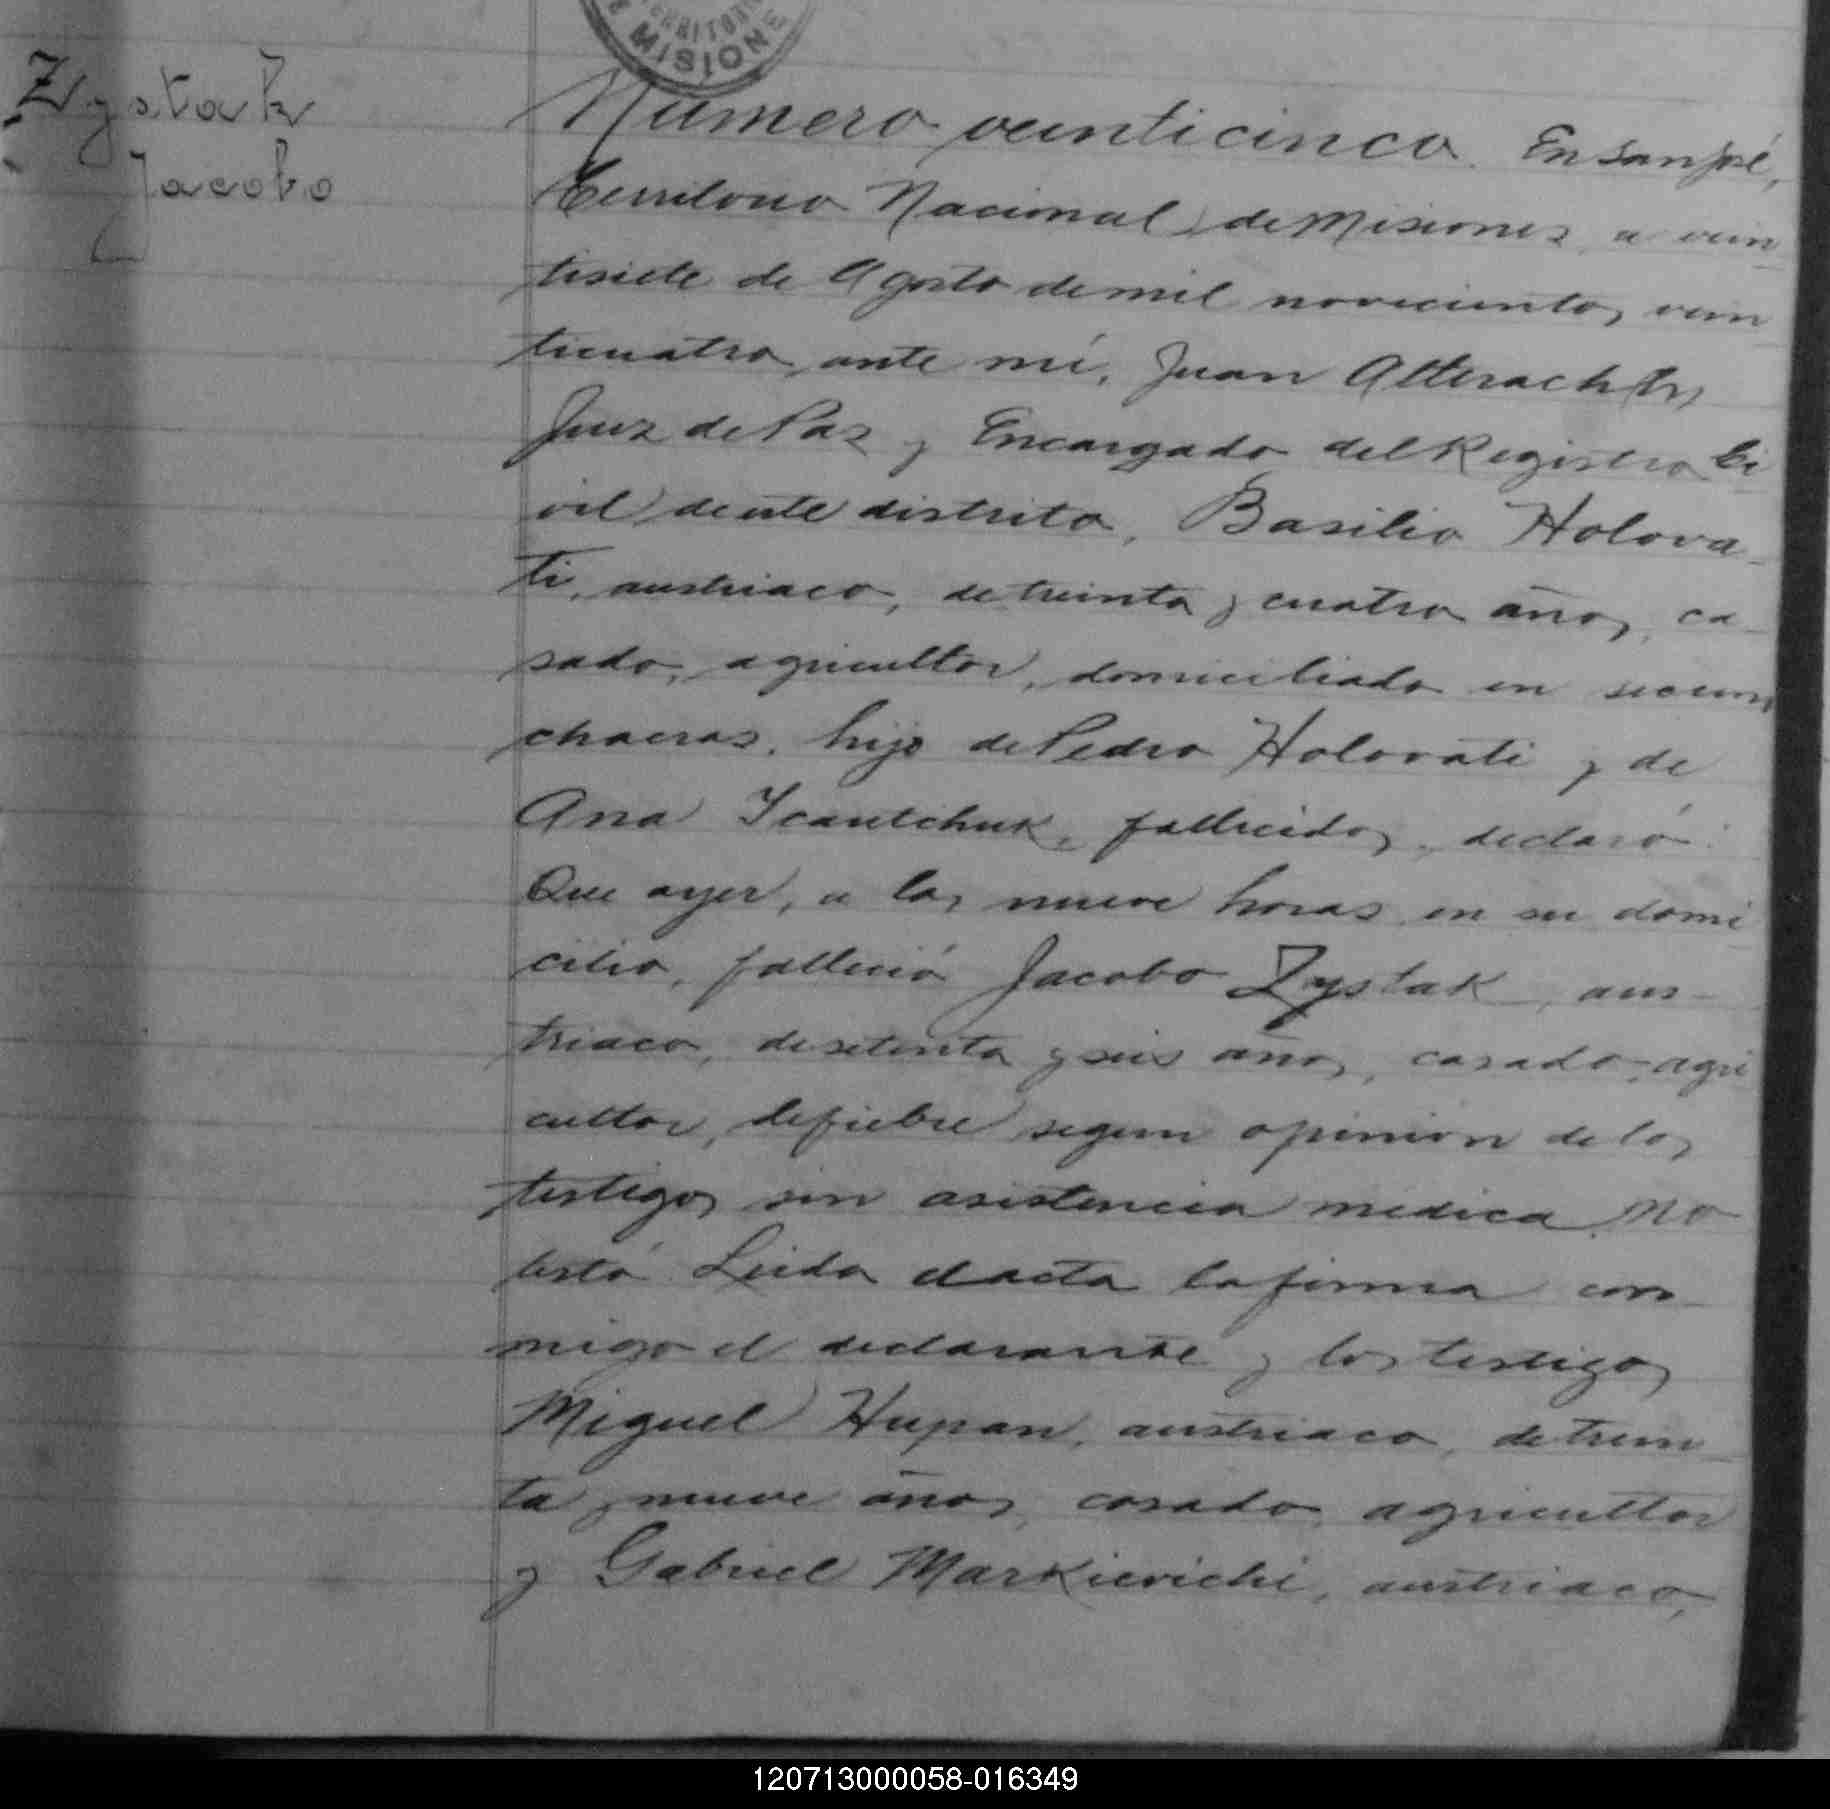 TERRITORIO
E MISIONE
Zystak
Jacobo
Número veinticinco. En San José,
Territorio Nacional de Misiones, a vein
tisiete de Agosto de mil novecientos vein
ticuatro, ante mí, Juan
Juez de Paz y Encargado del Registro Ci
vil de este distrito, Basilio Holova
ti, austriaco, de treinta y cuatro años, ca
sado, agricultor, domiciliado en
chacras, hijo de Pedro Holovati y de
Ana fallecidos, declaró:
Que ayer, a las nueve horas en su domi
cilio, falleció Jacobo Zystak, aus-
triaco, de setenta y seis años, casado, agri
cultor, de fiebre segun opinion de los
testigos sin asistencia medica. No
testó. Leida el acta la firma con
migo el declarante y los testigos
Miguel Hupan, austriaco, de trein
ta y nueve años, casado, agricultor
y Gabriel Markievichi, austriaco,
120713000058-016349